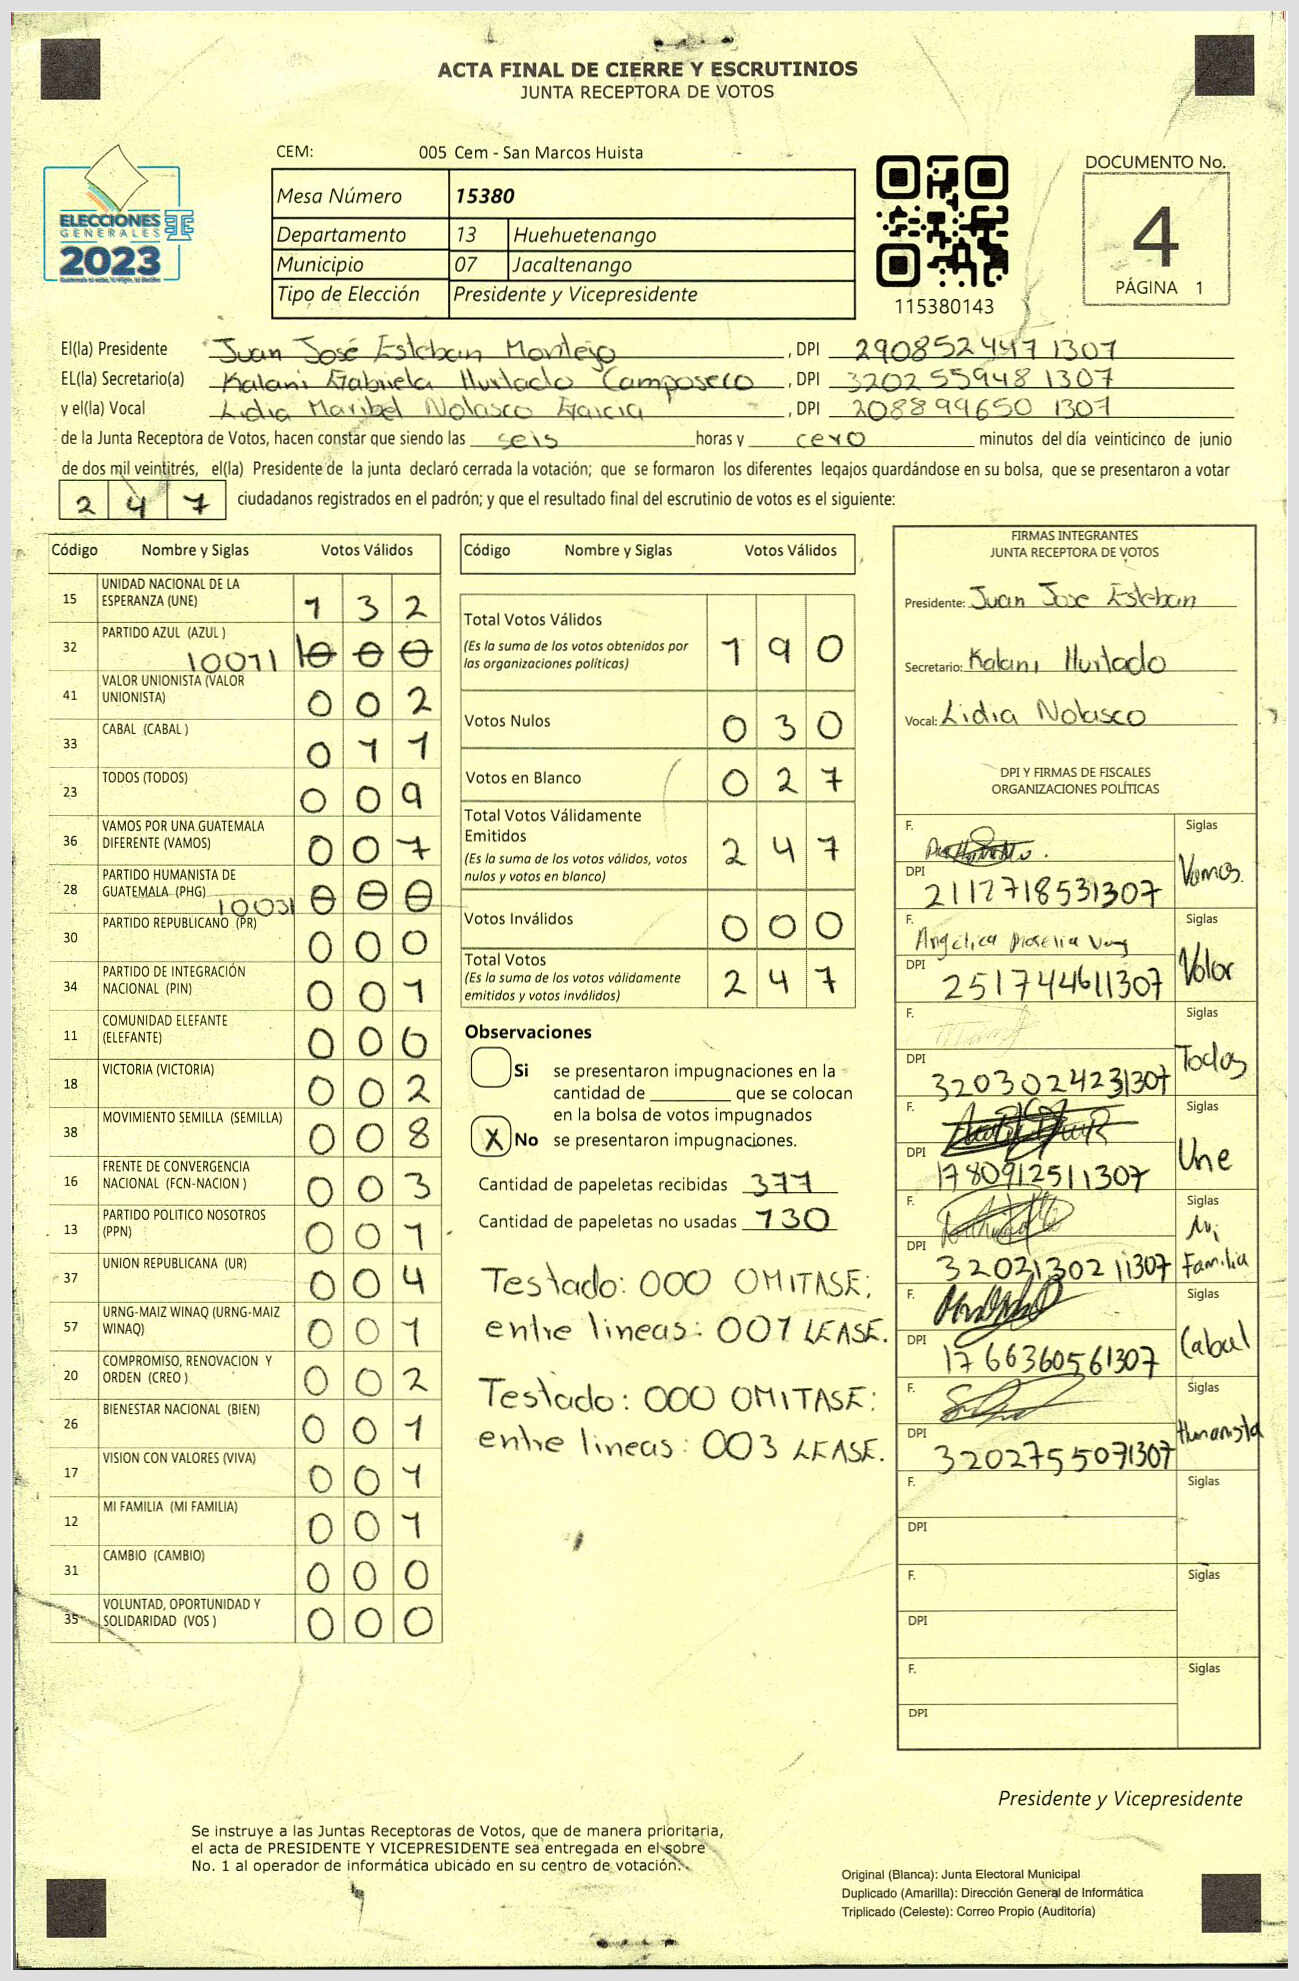 ACTA FINAL DE CIERRE Y ESCRUTINIOS
JUNTA RECEPTORA DE VOTOS
CEM: 005 Cem - San Marcos Huista
Mesa Número 15380
Departamento 13 Huehuetenango
Municipio 07 Jacaltenango
Tipo de Elección Presidente y Vicepresidente
ELECCIONES
GENERALES
2023
115380143
DOCUMENTO No.
4
PÁGINA 1
El(la) Presidente Juan José Esteban Montejo, DPI 2908524471307
EL(la) Secretario(a) Kalani Gabriela Hurtado Camposeco, DPI 3202559481307
y el(la) Vocal Lidia Maribel Nolasco Garcia, DPI 208899650 1307
de la Junta Receptora de Votos, hacen constar que siendo las seis horas y cero minutos del día veinticinco de junio
de dos mil veintitrés, el(la) Presidente de la junta declaró cerrada la votación; que se formaron los diferentes legajos guardándose en su bolsa, que se presentaron a votar
2 4 7 ciudadanos registrados en el padrón; y que el resultado final del escrutinio de votos es el siguiente:
Código Nombre y Siglas Votos Válidos
15 UNIDAD NACIONAL DE LA ESPERANZA (UNE) 1 3 2
32 PARTIDO AZUL (AZUL ) 10071 0 0 0
41 VALOR UNIONISTA (VALOR UNIONISTA) 0 0 2
33 CABAL (CABAL ) 0 1 1
23 TODOS (TODOS) 0 0 9
36 VAMOS POR UNA GUATEMALA DIFERENTE (VAMOS) 0 0 7
28 PARTIDO HUMANISTA DE GUATEMALA (PHG) 10031 0 0 0
30 PARTIDO REPUBLICANO (PR) 0 0 0
34 PARTIDO DE INTEGRACIÓN NACIONAL (PIN) 0 0 1
11 COMUNIDAD ELEFANTE (ELEFANTE) 0 0 0
18 VICTORIA (VICTORIA) 0 0 2
38 MOVIMIENTO SEMILLA (SEMILLA) 0 0 8
16 FRENTE DE CONVERGENCIA NACIONAL (FCN-NACION ) 0 0 3
13 PARTIDO POLITICO NOSOTROS (PPN) 0 0 1
37 UNION REPUBLICANA (UR) 0 0 4
57 URNG-MAIZ WINAQ (URNG-MAIZ WINAQ) 0 0 1
20 COMPROMISO, RENOVACION Y ORDEN (CREO ) 0 0 2
26 BIENESTAR NACIONAL (BIEN) 0 0 1
17 VISION CON VALORES (VIVA) 0 0 1
12 MI FAMILIA (MI FAMILIA) 0 0 1
31 CAMBIO (CAMBIO) 0 0 0
35 VOLUNTAD, OPORTUNIDAD Y SOLIDARIDAD (VOS ) 0 0 0
Código Nombre y Siglas Votos Válidos
Total Votos Válidos 1 9 0
(Es la suma de los votos obtenidos por
las organizaciones políticas)
Votos Nulos 0 3 0
Votos en Blanco 0 2 7
Total Votos Válidamente
Emitidos 2 4 7
(Es la suma de los votos válidos, votos
nulos y votos en blanco)
Votos Inválidos 0 0 0
Total Votos 2 4 7
(Es la suma de los votos válidamente
emitidos y votos inválidos)
Observaciones
Si se presentaron impugnaciones en la
cantidad de ________ que se colocan
en la bolsa de votos impugnados
X No se presentaron impugnaciones.
Cantidad de papeletas recibidas 377
Cantidad de papeletas no usadas 130
Testado: 000 OMITASE;
entre lineas: 001 LEASE.
Testado: 000 OMITASE:
entre lineas: 003 LEASE.
FIRMAS INTEGRANTES
JUNTA RECEPTORA DE VOTOS
Presidente: Juan Jose Esteban
Secretario: Kalani Hurtado
Vocal: Lidia Nolasco
DPI Y FIRMAS DE FISCALES
ORGANIZACIONES POLÍTICAS
F. Siglas Vamos.
DPI 2112718531307
F. Angelica Siglas Valor
DPI 251744611307
F. Siglas Todos
DPI 3203024231307
F. Siglas Une
DPI 1780912511307
F. Siglas Mi Familia
DPI 3202130211307
F. Siglas Cabal
DPI 1766360561307
F. Siglas Humanista
DPI 3202755071307
F. Siglas
DPI
F. Siglas
DPI
F. Siglas
DPI
Presidente y Vicepresidente
Se instruye a las Juntas Receptoras de Votos, que de manera prioritaria,
el acta de PRESIDENTE Y VICEPRESIDENTE sea entregada en el sobre
No. 1 al operador de informática ubicado en su centro de votación.
Original (Blanca): Junta Electoral Municipal
Duplicado (Amarilla): Dirección General de Informática
Triplicado (Celeste): Correo Propio (Auditoría)